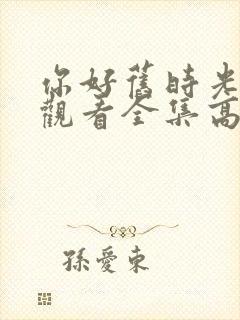 你好舊時光
觀看全集高
孫愛東